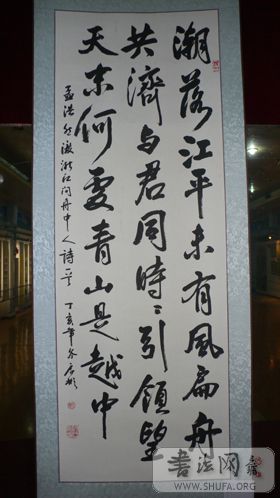 潮落江平未有風扁舟
共濟與君同時〻引領望
天末何處青山是越中
孟浩然渡浙江问舟中人詩 丁亥年冬
書法网
WWW.SHUFA.ORG